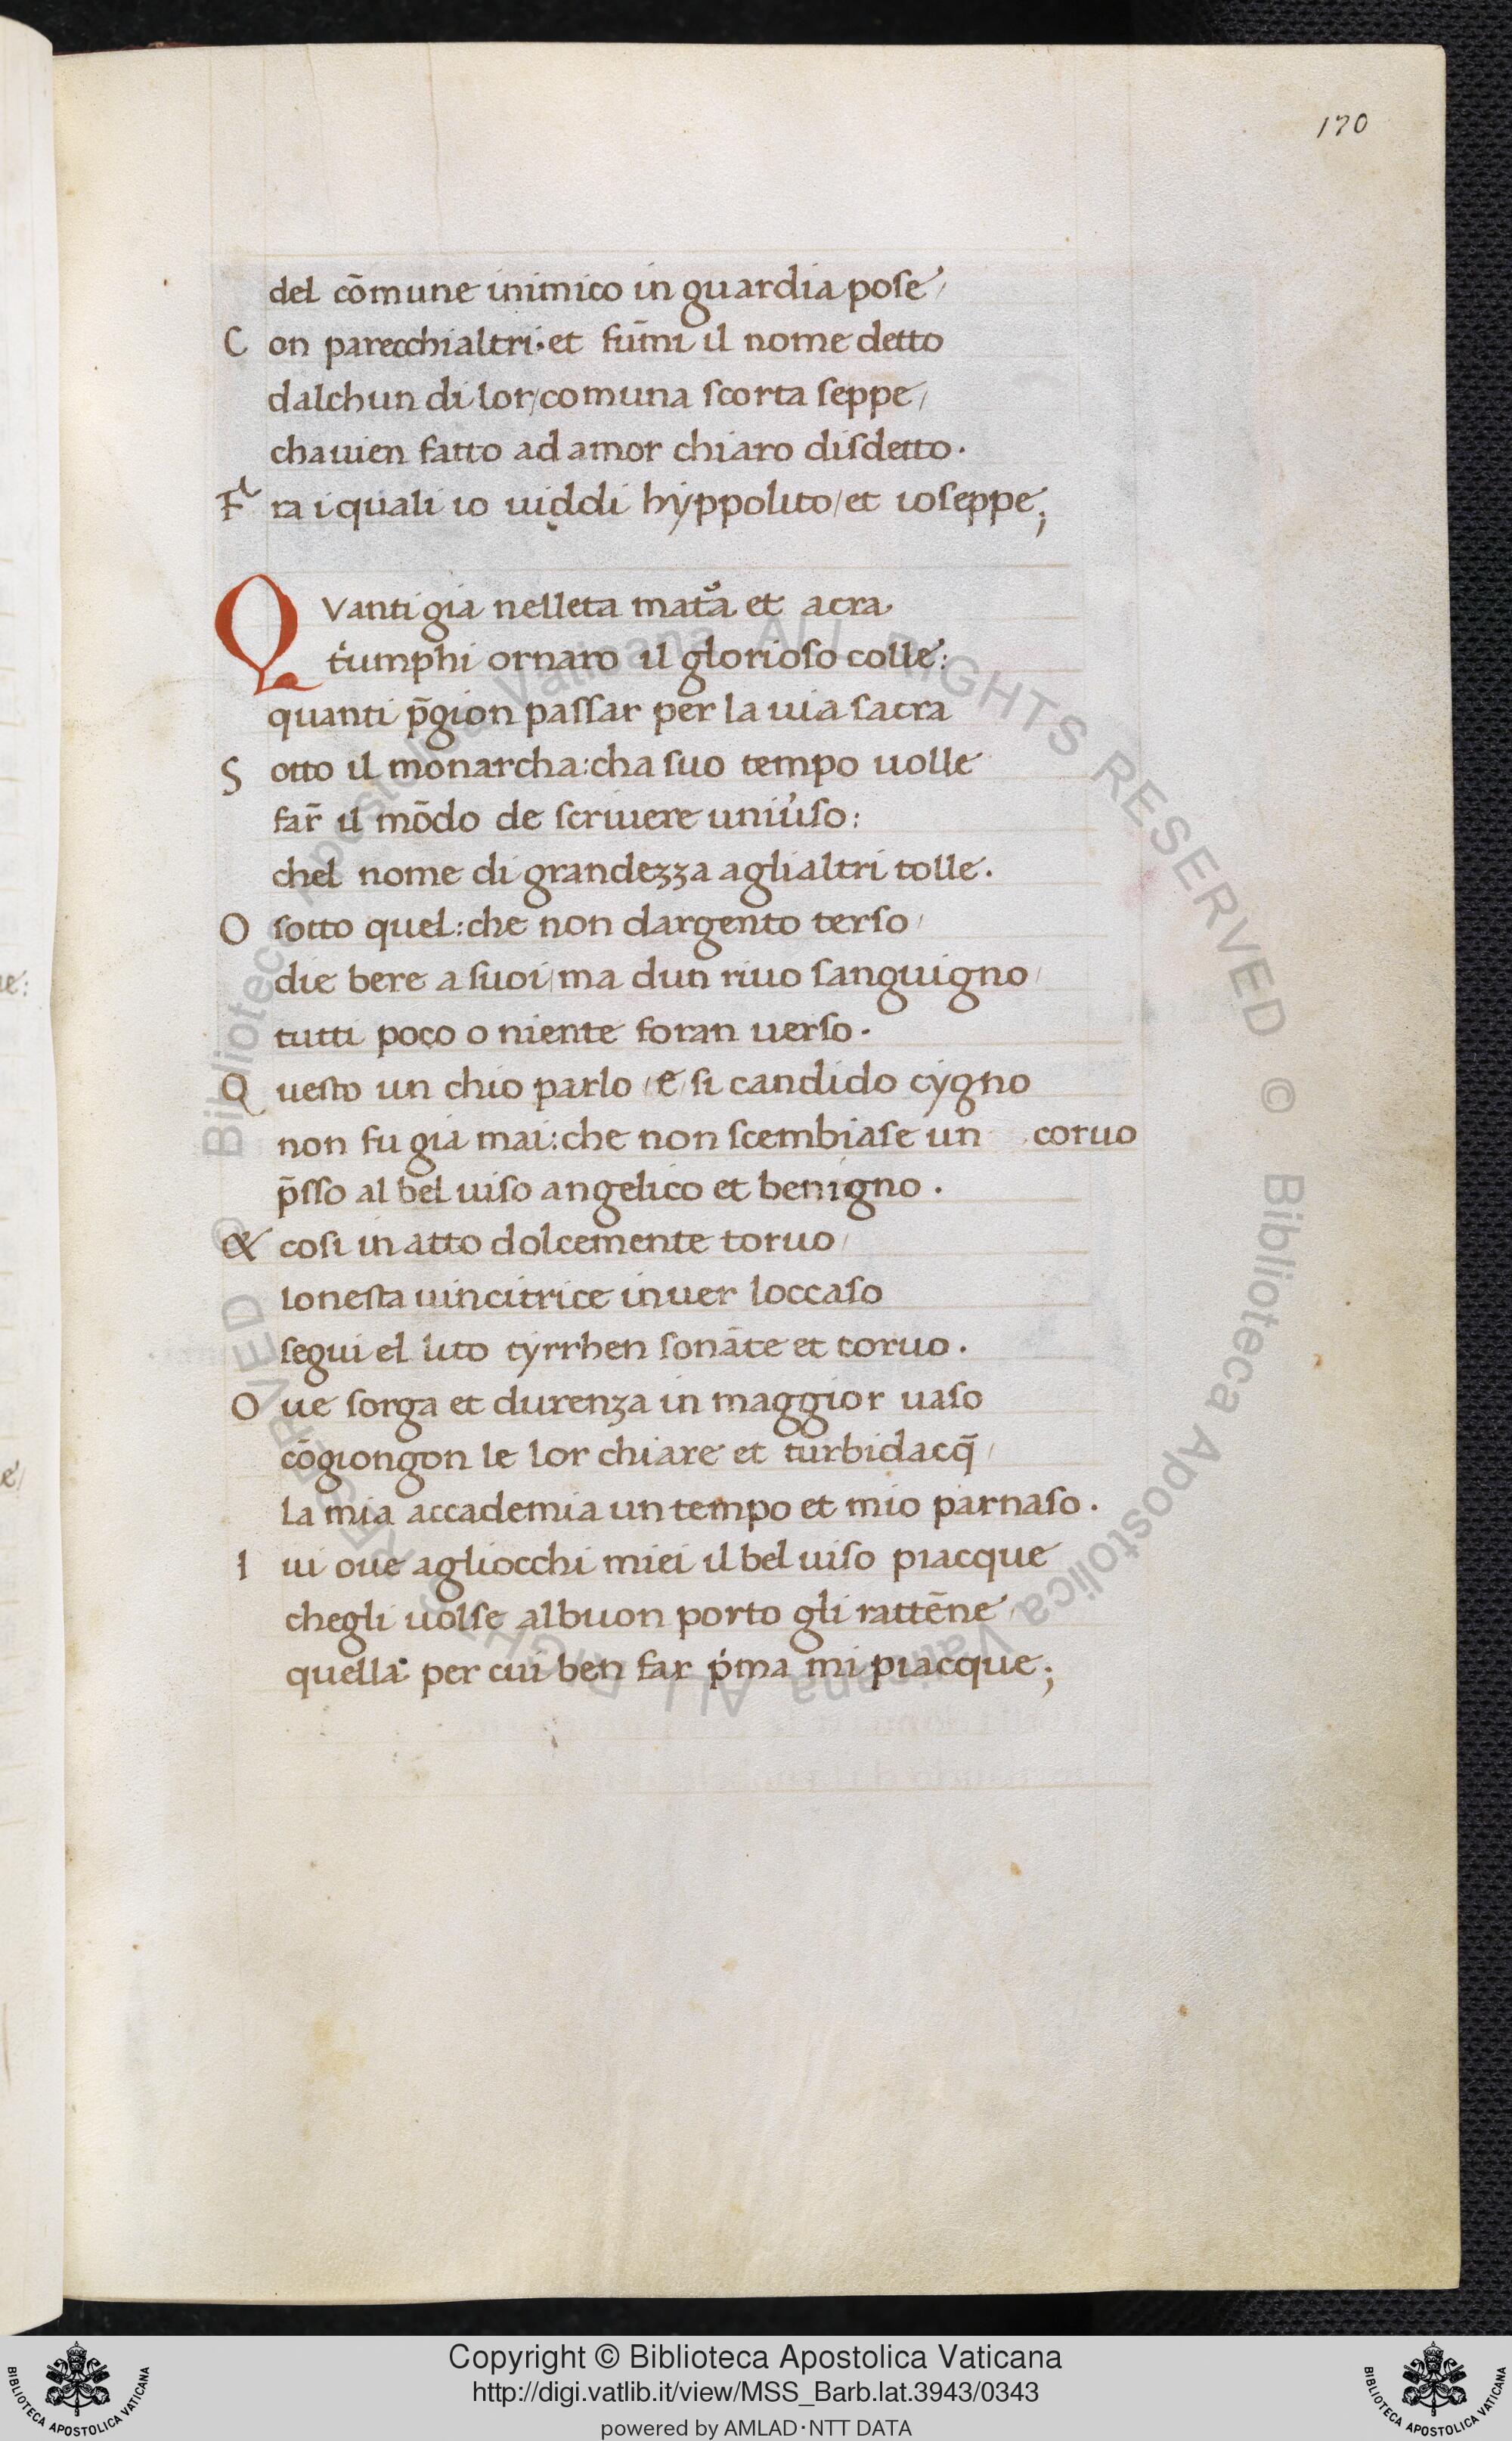 170
del cōmune inimico in guardia pose/
C on parecchialtri· et fum̄i il nome detto
dalchun di lor/comuna scorta seppe/
chauien fatto ad amor chiaro disdetto.
F ra i quali io uiddi hyppolito/et ioseppe;
QVanti gia nelleta matᷓa et acra
tͥumphi ornaro il glorioso colle:
quanti p̄gion passar per la uia sacra
S otto il monarcha:cha suo tempo uolle
far̄ il mōdo de scriuere uniu͛so:
chel nome di grandezza aglialtri tolle.
O sotto quel:che non dargento terso/
die bere a suoi/ma dun riuo sanguigno/
tutti poco o niente foran uerso.
Q uesto un chio parlo/e/si candido cygno
non fu gia mai:che non scembiase un coruo
p̄sso al bel uiso angelico et benigno.
& cosi in atto dolcemente toruo/
lonesta uincitrice inuer loccaso
segui el lito tyrrhen sonāte et coruo.
O ue sorga et durenza in maggior uaso
cōgiongon le lor chiare et turbidacq̄/
la mia accademia un tempo et mio parnaso.
I ui oue agliocchi miei il bel uiso piacque
chegli uolse albuon porto gli rattēne/
quella· per cui ben far pͥma mi piacque;
Copyright © Biblioteca Apostolica Vaticana
http://digi.vatlib.it/view/MSS_Barb.lat.3943/0343
powered by AMLAD·NTT DATA
BIBLIOTECA APOSTOLICA VATICANA
BIBLIOTECA APOSTOLICA VATICANA
© Biblioteca Apostolica Vaticana ALL RIGHTS RESERVED © Biblioteca Apostolica Vaticana ALL RIGHTS RESERVED